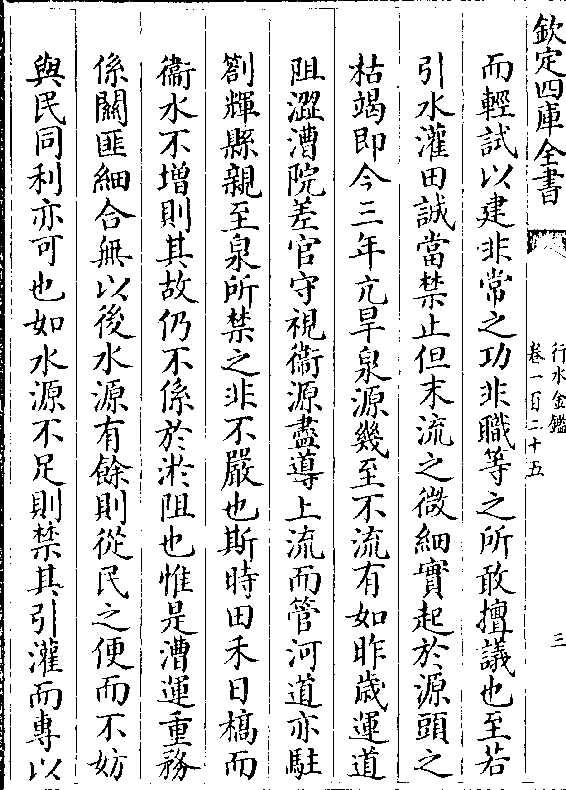 欽定四庫全書
行水金鑑
卷一百二十五
三
而輕試以建非常之功非職等之所敢擅議也至若
引水灌田誠當禁止但末流之微細實起於源頭之
枯竭即今三年亢旱泉源幾至不流有如昨歲運道
阻澀漕院差官守視衞源盡導上流而管河道亦駐
劄輝縣親至泉所禁之非不嚴也斯時田禾日槁而
衞水不增則其故仍不係於淤阻也惟是漕運重務
係關匪細合無以後水源有餘則從民之便而不妨
與民同利亦可也如水源不足則禁其引灌而專以